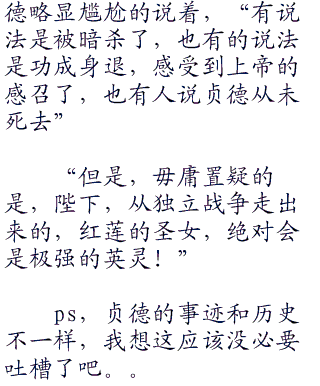 德略显尴尬的说着，“有说
法是被暗杀了，也有的说法
是功成身退，感受到上帝的
感召了，也有人说贞德从未
死去”
“但是，毋庸置疑的
是，陛下，从独立战争走出
来的，红莲的圣女，绝对会
是极强的英灵！”
ps，贞德的事迹和历史
不一样，我想这应该没必要
吐槽了吧。。